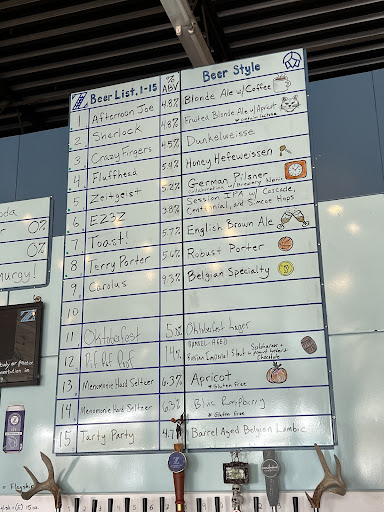 Beer List. 1-15
% ABV
Beer Style
1 Afternoon Joe 4.8% Blonde Ale w/Coffee
2 Sherlock 4.8% Fruited Blonde Ale w/Apricot
3 Crazy Fingers 4.5% Dunkelweisse
4 Fluffhead 5.4% Honey Hefeweissen
5 Zeitgeist 5.2% German Pilsner
w/ Brewery Nønic
6 EZ3Z 3.8% Session IPA w/ Cascade,
Centennial, and Simcoe Hops
7 Toast! 5.7% English Brown Ale
8 Terry Porter 5.6% Robust Porter
9 Carolus 9.3% Belgian Specialty
10
11 Oktoberfest Oktoberfest Lager
12. Pif Paf Pouf 14% BARREL-AGED
Russian Imperial Stout w/
Chocolate
13. Menomonie Hard Seltzer 6.3% Apricot
* Gluten Free
14. Menomonie Hard Seltzer Blue Raspberry
* Gluten Free
15 Tarty Party 4.7% Barrel Aged Belgian Lambic
0%
0%
15 oz.